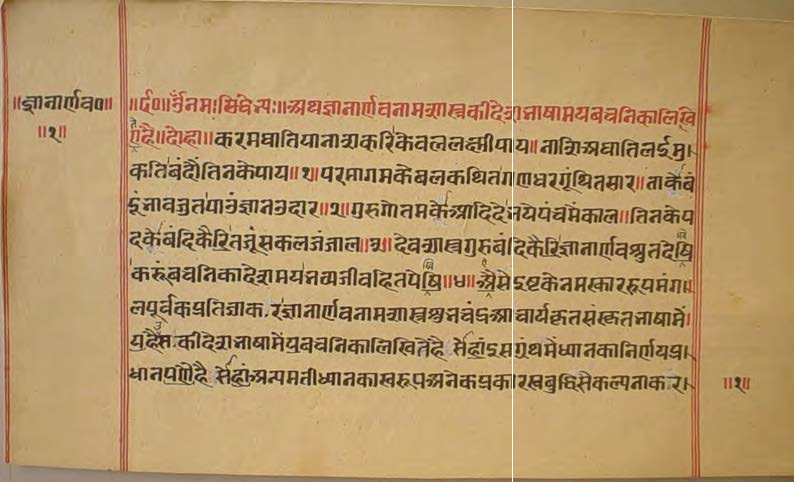 ॥ज्ञानार्णव०॥
॥१॥
॥र्द०॥ ॐ नमः सिद्धेभ्यः॥ अथ ज्ञानार्णवनामशास्त्रकी देशभाषामयवचनिका लिखि
ये है॥ दोहा॥ करम घातिया नाश करि केवल लक्ष्मी पाय॥ नाशि अघाति लई मु
कति बंदौं तिनके पाय॥१॥ परमागम केवल कथित गणधर गूंथित सार॥ ताकें बं
दूं भाव जुत पाऊं ज्ञान उदार॥२॥ गुरु गौतमकें आदि दे भये पंचमें काल॥ तिनके प
द कें बंदिकै रितजूं सकल जंजाल॥३॥ देव शास्त्र गुरु बंदि कैरि ज्ञानार्णव श्रुत देषि
करूं वचनिका देशमय भव्य जीव हित पेषि॥४॥ ऐसे इष्टके नमस्काररूप मंग
लपूर्वक प्रतिज्ञा कर ज्ञानार्णवनामशास्त्र शुभचंद्र आचार्यकृत संस्कृत भाषामें
है की देशभाषामें वचनिका लिखि है इस ग्रंथमें ध्यानका निर्णय प्र
धान है अन्यमती ध्यानका स्वरूप अनेक प्रकार स्वबुद्धिसै कल्पना कर
॥१॥